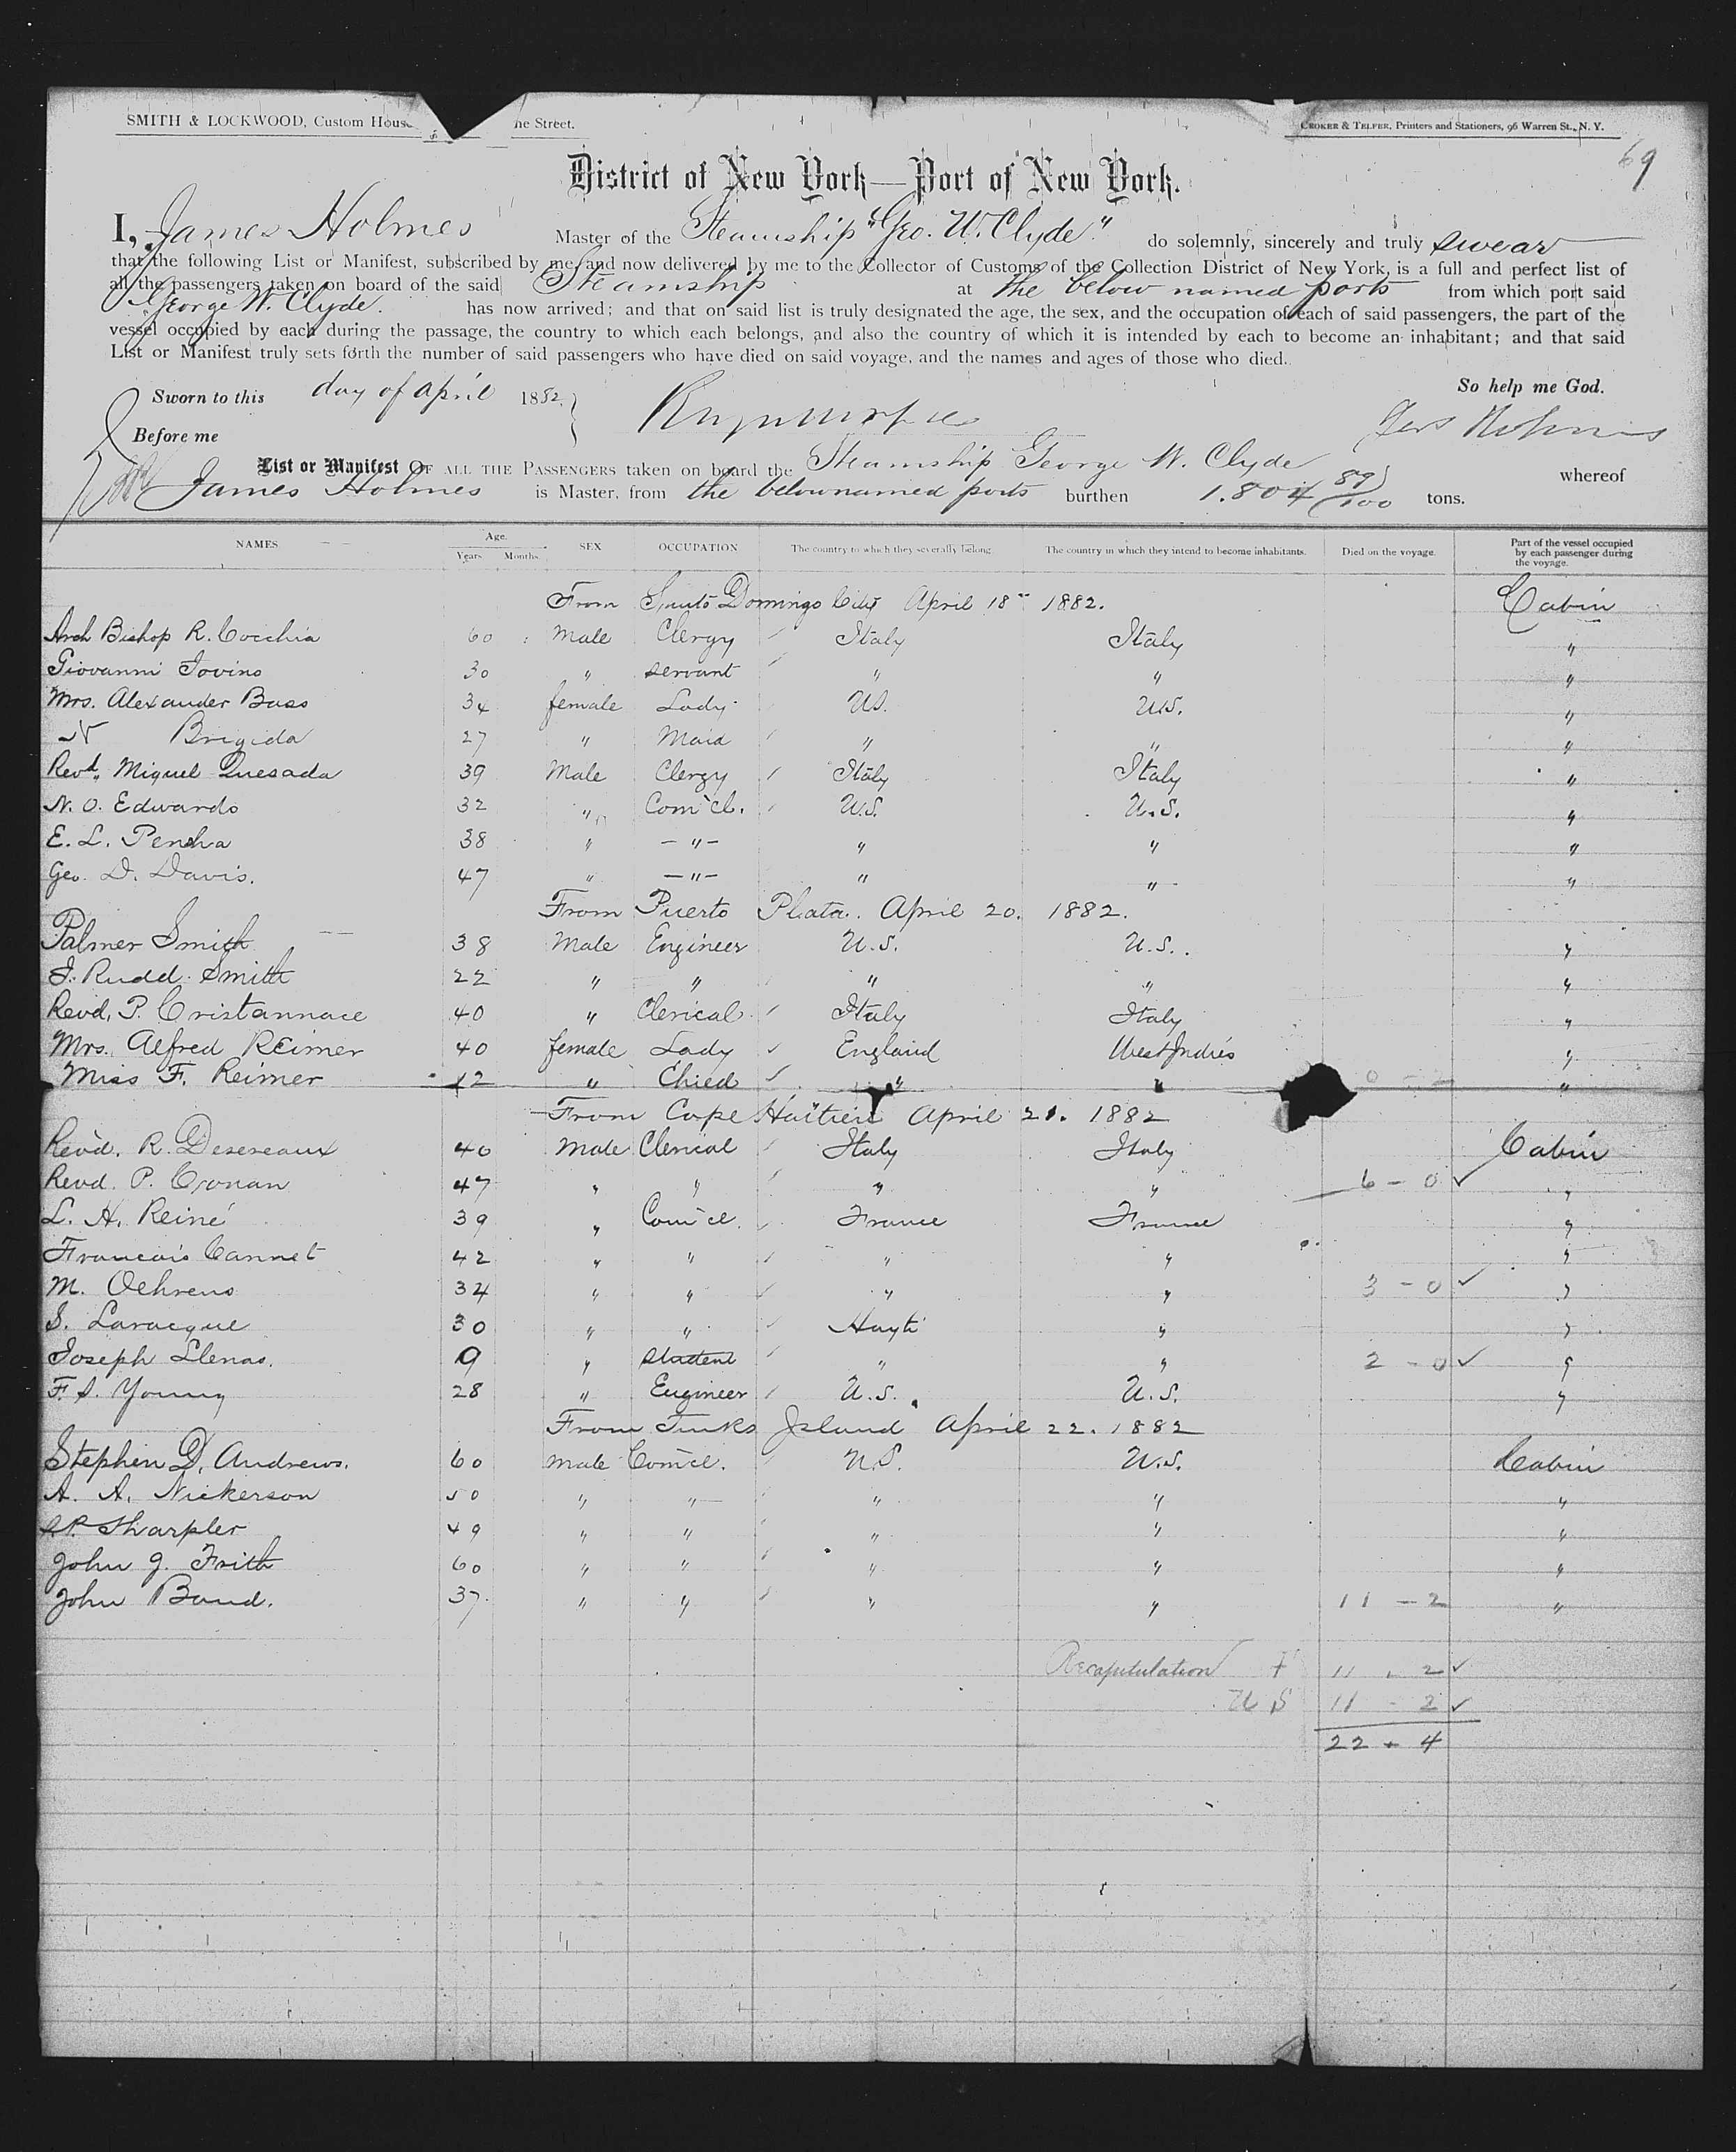 SMITH & LOCKWOOD, Custom House he Street.
CROKER & TELFER, Printers and Stationers, 96 Warren St., N. Y.
69
District of New York—Port of New York.
I, James Holmes Master of the Steamship "Geo. W. Clyde." do solemnly, sincerely and truly swear
that the following List or Manifest, subscribed by me, and now delivered by me to the Collector of Customs of the Collection District of New York, is a full and perfect list of
all the passengers taken on board of the said Steamship at the below named ports from which port said
"George W. Clyde. has now arrived; and that on said list is truly designated the age, the sex, and the occupation of each of said passengers, the part of the
vessel occupied by each during the passage, the country to which each belongs, and also the country of which it is intended by each to become an inhabitant; and that said
List or Manifest truly sets forth the number of said passengers who have died on said voyage, and the names and ages of those who died.
So help me God.
Sworn to this day of April 1882
Before me
List or Manifest OF ALL THE PASSENGERS taken on board the Steamship George W. Clyde whereof
James Holmes is Master, from the belownamed ports burthen 1.804 89/100 tons.
NAMES Age. Years Months. SEX OCCUPATION The country to which they severally belong. The country in which they intend to become inhabitants. Died on the voyage. Part of the vessel occupied by each passenger during the voyage.
From Santo Domingo City April 18" 1882. Cabin
Arch Bishop R. Cocchia 60 Male Clergy Italy Italy "
Giovanni Iovino 30 " servant " " "
Mrs. Alexander Bass 34 female Lady US. U.S. "
N Brigida 27 " Maid " " "
Revd. Miquel Quesada 39 Male Clergy Italy Italy "
N. O. Edwards 32 " Com'cl. U.S. U.S. "
E. L. Pensha 38 " -"- " " "
Geo. D. Davis. 47 " -"- " " "
From Puerto Plata. April 20. 1882.
Palmer Smith 38 Male Engineer U.S. U.S. "
J. Rudd Smith 22 " " " " "
Revd, P. Cristannace 40 " Clerical Italy Italy "
Mrs. Alfred Reimer 40 female Lady England West Indies "
Miss F. Reimer 12 " Chied " " 0 - 2 "
From Cape Haitien April 21. 1882
Revd. R. Desereaux 40 Male Clerical Italy Italy Cabin
Revd. P. Cronan 47 " " " " 6 - 0 ✓ "
L. H. Reiné 39 " Com'cl. France France "
Francois Cannet 42 " " " " "
M. Oehrens 34 " " " " 3 - 0 ✓ "
S. Laracque 30 " " Hayti " "
Joseph Llenas. 9 " Student " " 2 - 0 ✓ "
F. S. Young 28 " Engineer U.S. U.S. "
From Turks Island April 22. 1882
Stephen D. Andrews. 60 male Com'cl. U.S. U.S. Cabin
A. A. Nickerson 50 " " " " "
Sharpler 49 " " " " "
John J. Frith 60 " " " " "
John Bund. 37 " " " " 11 - 2 "
Recapitulation F 11 - 2 ✓
U S 11 - 2 ✓
22 - 4